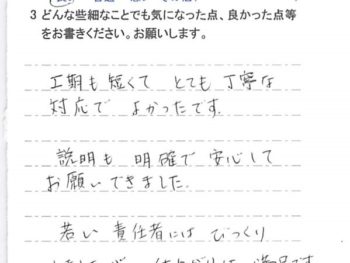 3 どんな些細なことでも気になった点、良かった点等
をお書きください。お願いします。
工期も短くて とても丁寧な
対応で よかったです.
説明も 明確で 安心して
お願いできました.
若い 責任者には びっくり